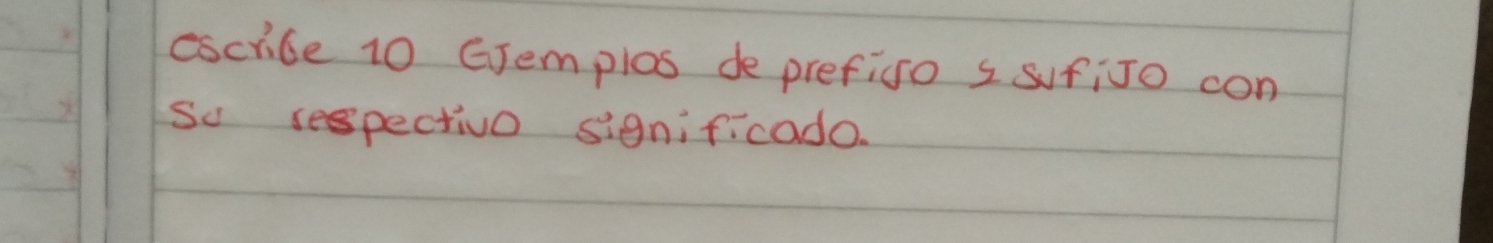 escribe 10 EJemplos de prefiJo y sufiJo con
su respectivo significado.